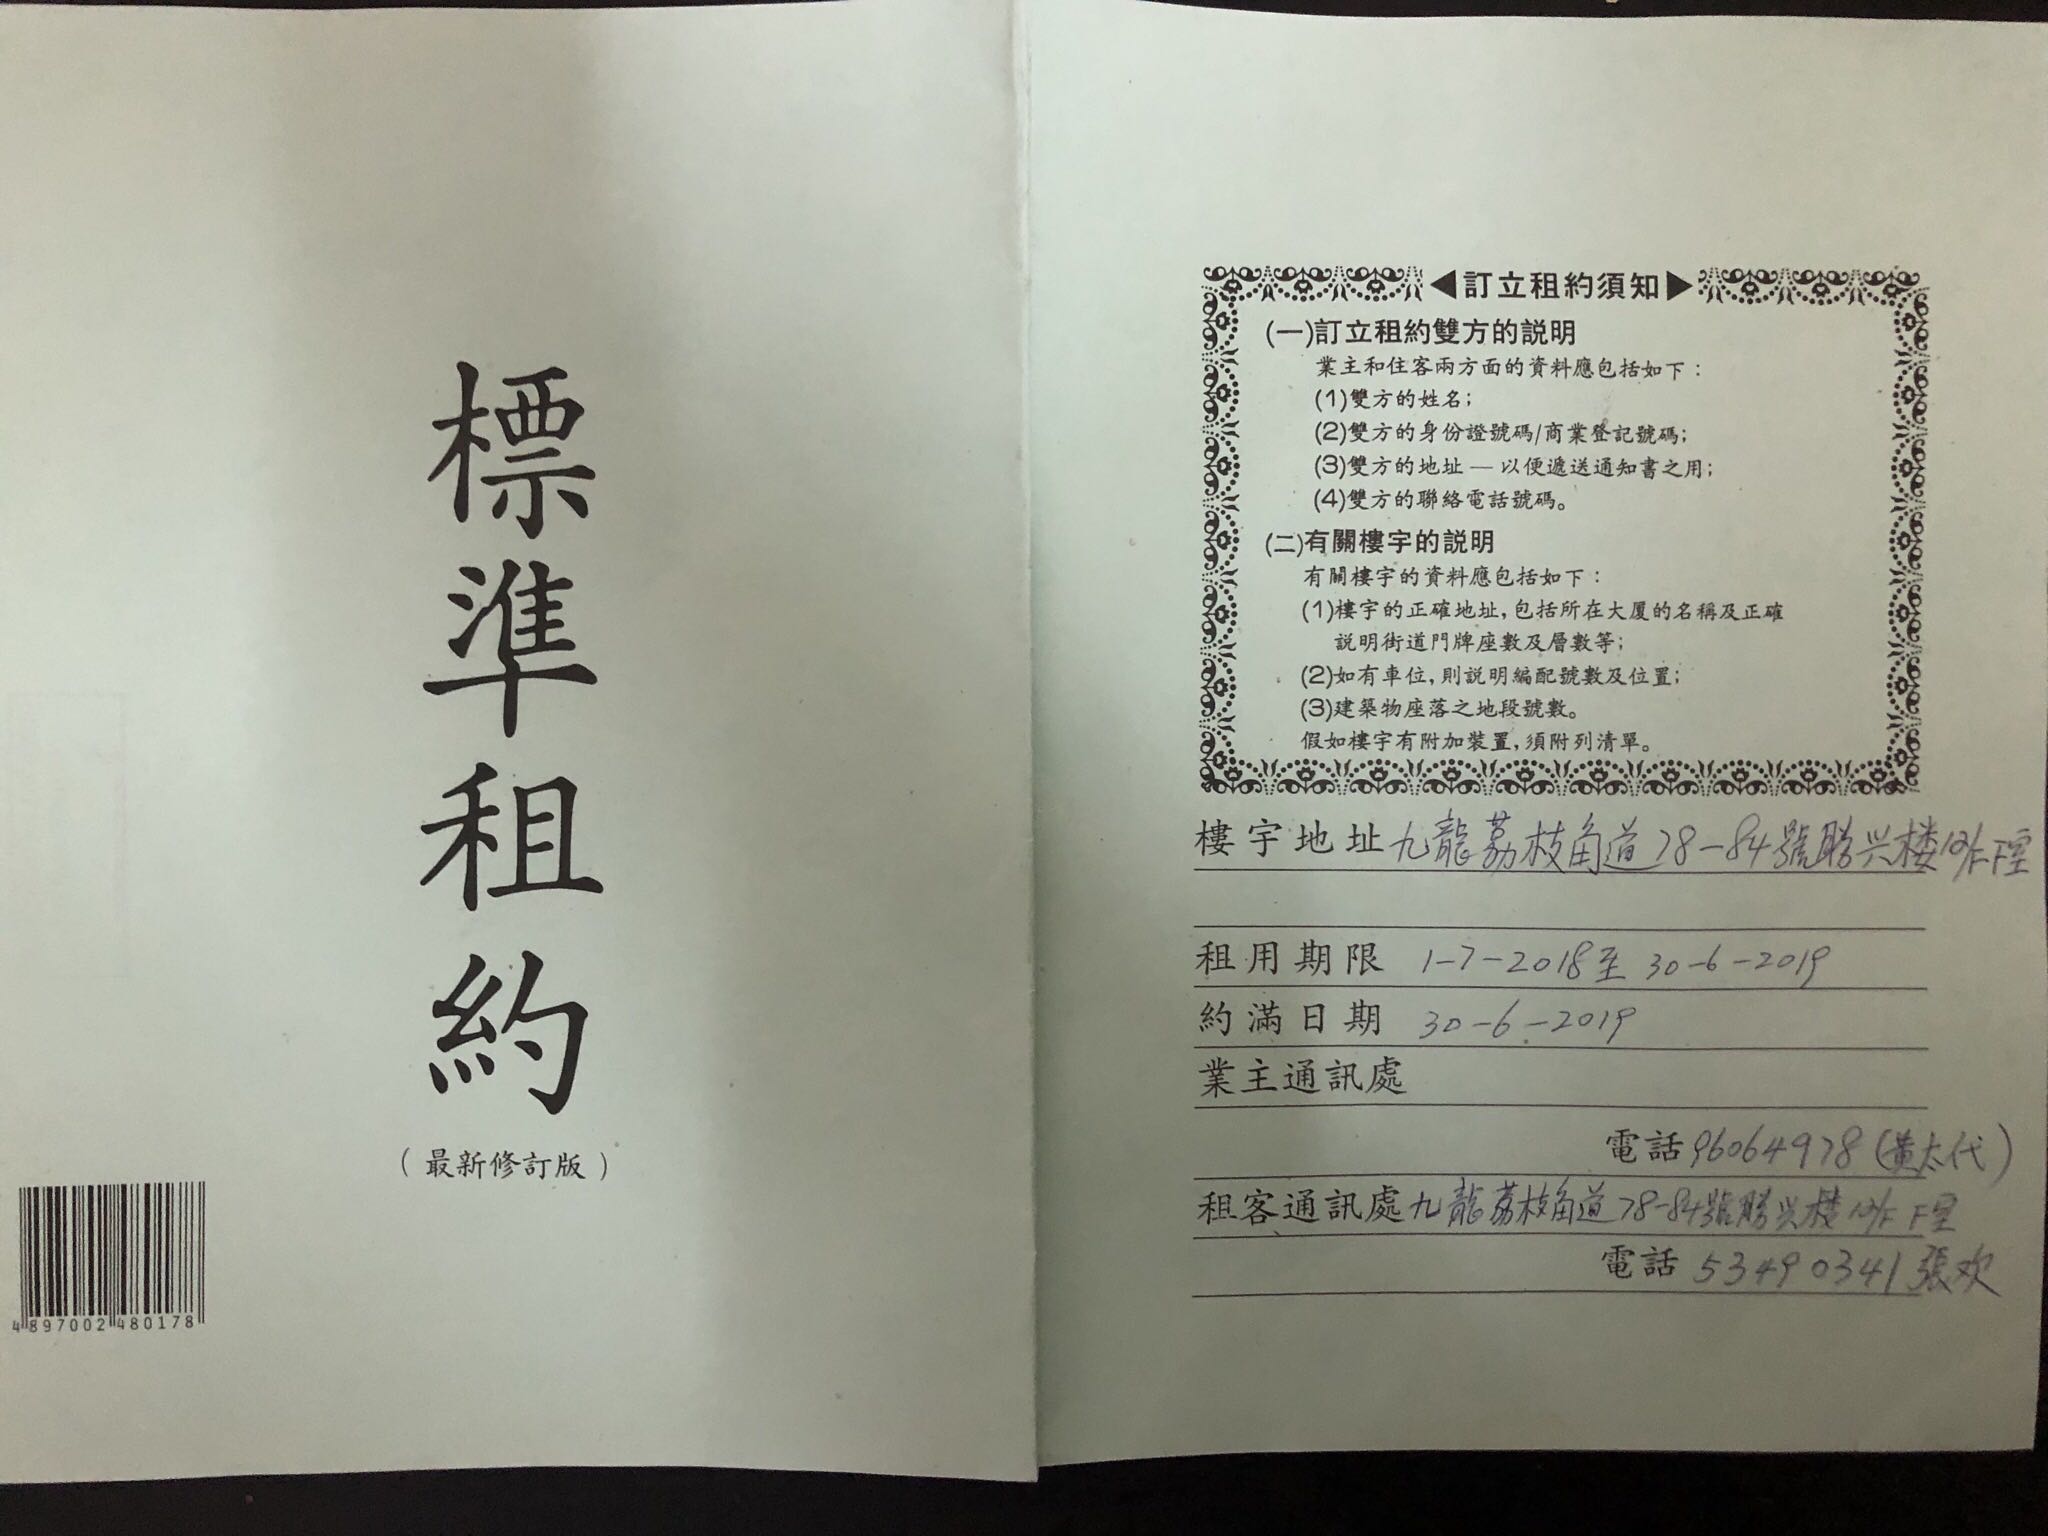 標準租約
(最新修訂版)
4897002480178
◀訂立租約須知▶
(一)訂立租約雙方的説明
業主和住客兩方面的資料應包括如下：
(1)雙方的姓名；
(2)雙方的身份證號碼/商業登記號碼；
(3)雙方的地址 — 以便遞送通知書之用；
(4)雙方的聯絡電話號碼。
(二)有關樓宇的説明
有關樓宇的資料應包括如下：
(1)樓宇的正確地址，包括所在大厦的名稱及正確
説明街道門牌座數及層數等；
(2)如有車位，則説明編配號數及位置；
(3)建築物座落之地段號數。
假如樓宇有附加裝置，須附列清單。
樓宇地址 九龍荔枝角道78-84號勝兴楼 F室
租用期限 1-7-2018至30-6-2019
約滿日期 30-6-2019
業主通訊處
電話 96064978 (黄太代)
租客通訊處 九龍荔枝角道78-84號勝兴楼 F室
電話 53490341 張欢